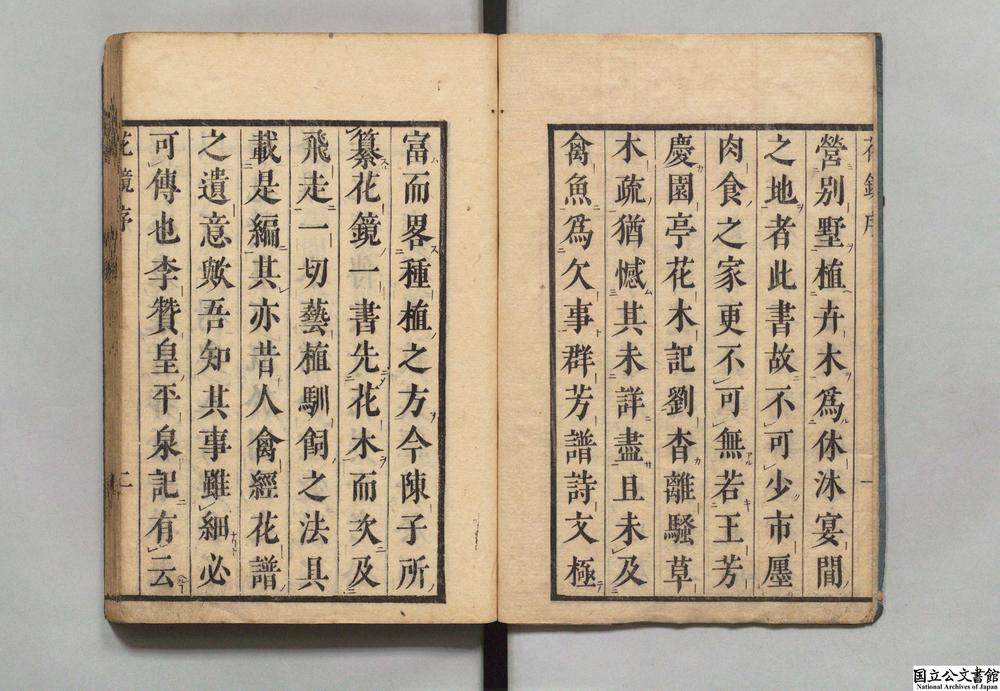 營別墅植卉木爲休沐宴閒
之地者此書故不可少市廛
肉食之家更不可無若王芳
慶園亭花木記劉杳離騷草
木疏猶憾其未詳盡且未及
禽魚爲欠事群芳譜詩文極
富而畧種植之方今陳子所
纂花鏡一書先花木而次及
飛走一切藝植馴飼之法具
載是編其亦昔人禽經花譜
之遺意歟吾知其事雖細必
可傳也李贊皇平泉記有云
花鏡序
二
国立公文書館
National Archives of Japan